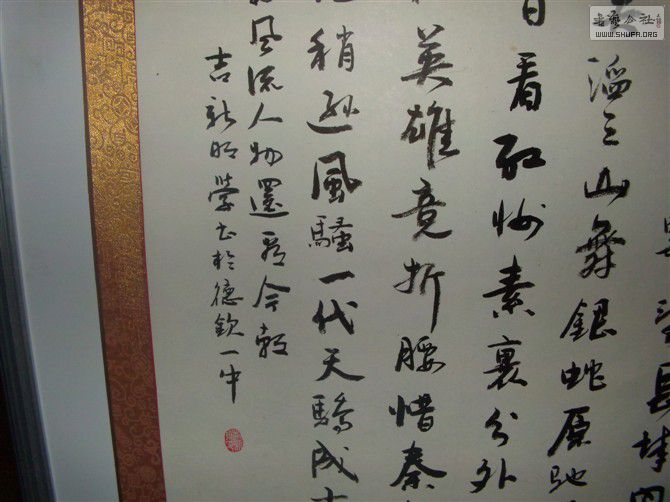 書藝公社
WWW.SHUFA.ORG
望長城内
滔〻山舞銀蛇原馳
日看紅妝素裹分外
英雄竞折腰惜秦
稍遜風騷一代天驕成吉
風流人物還看今朝
吉新明學书於德欽一中